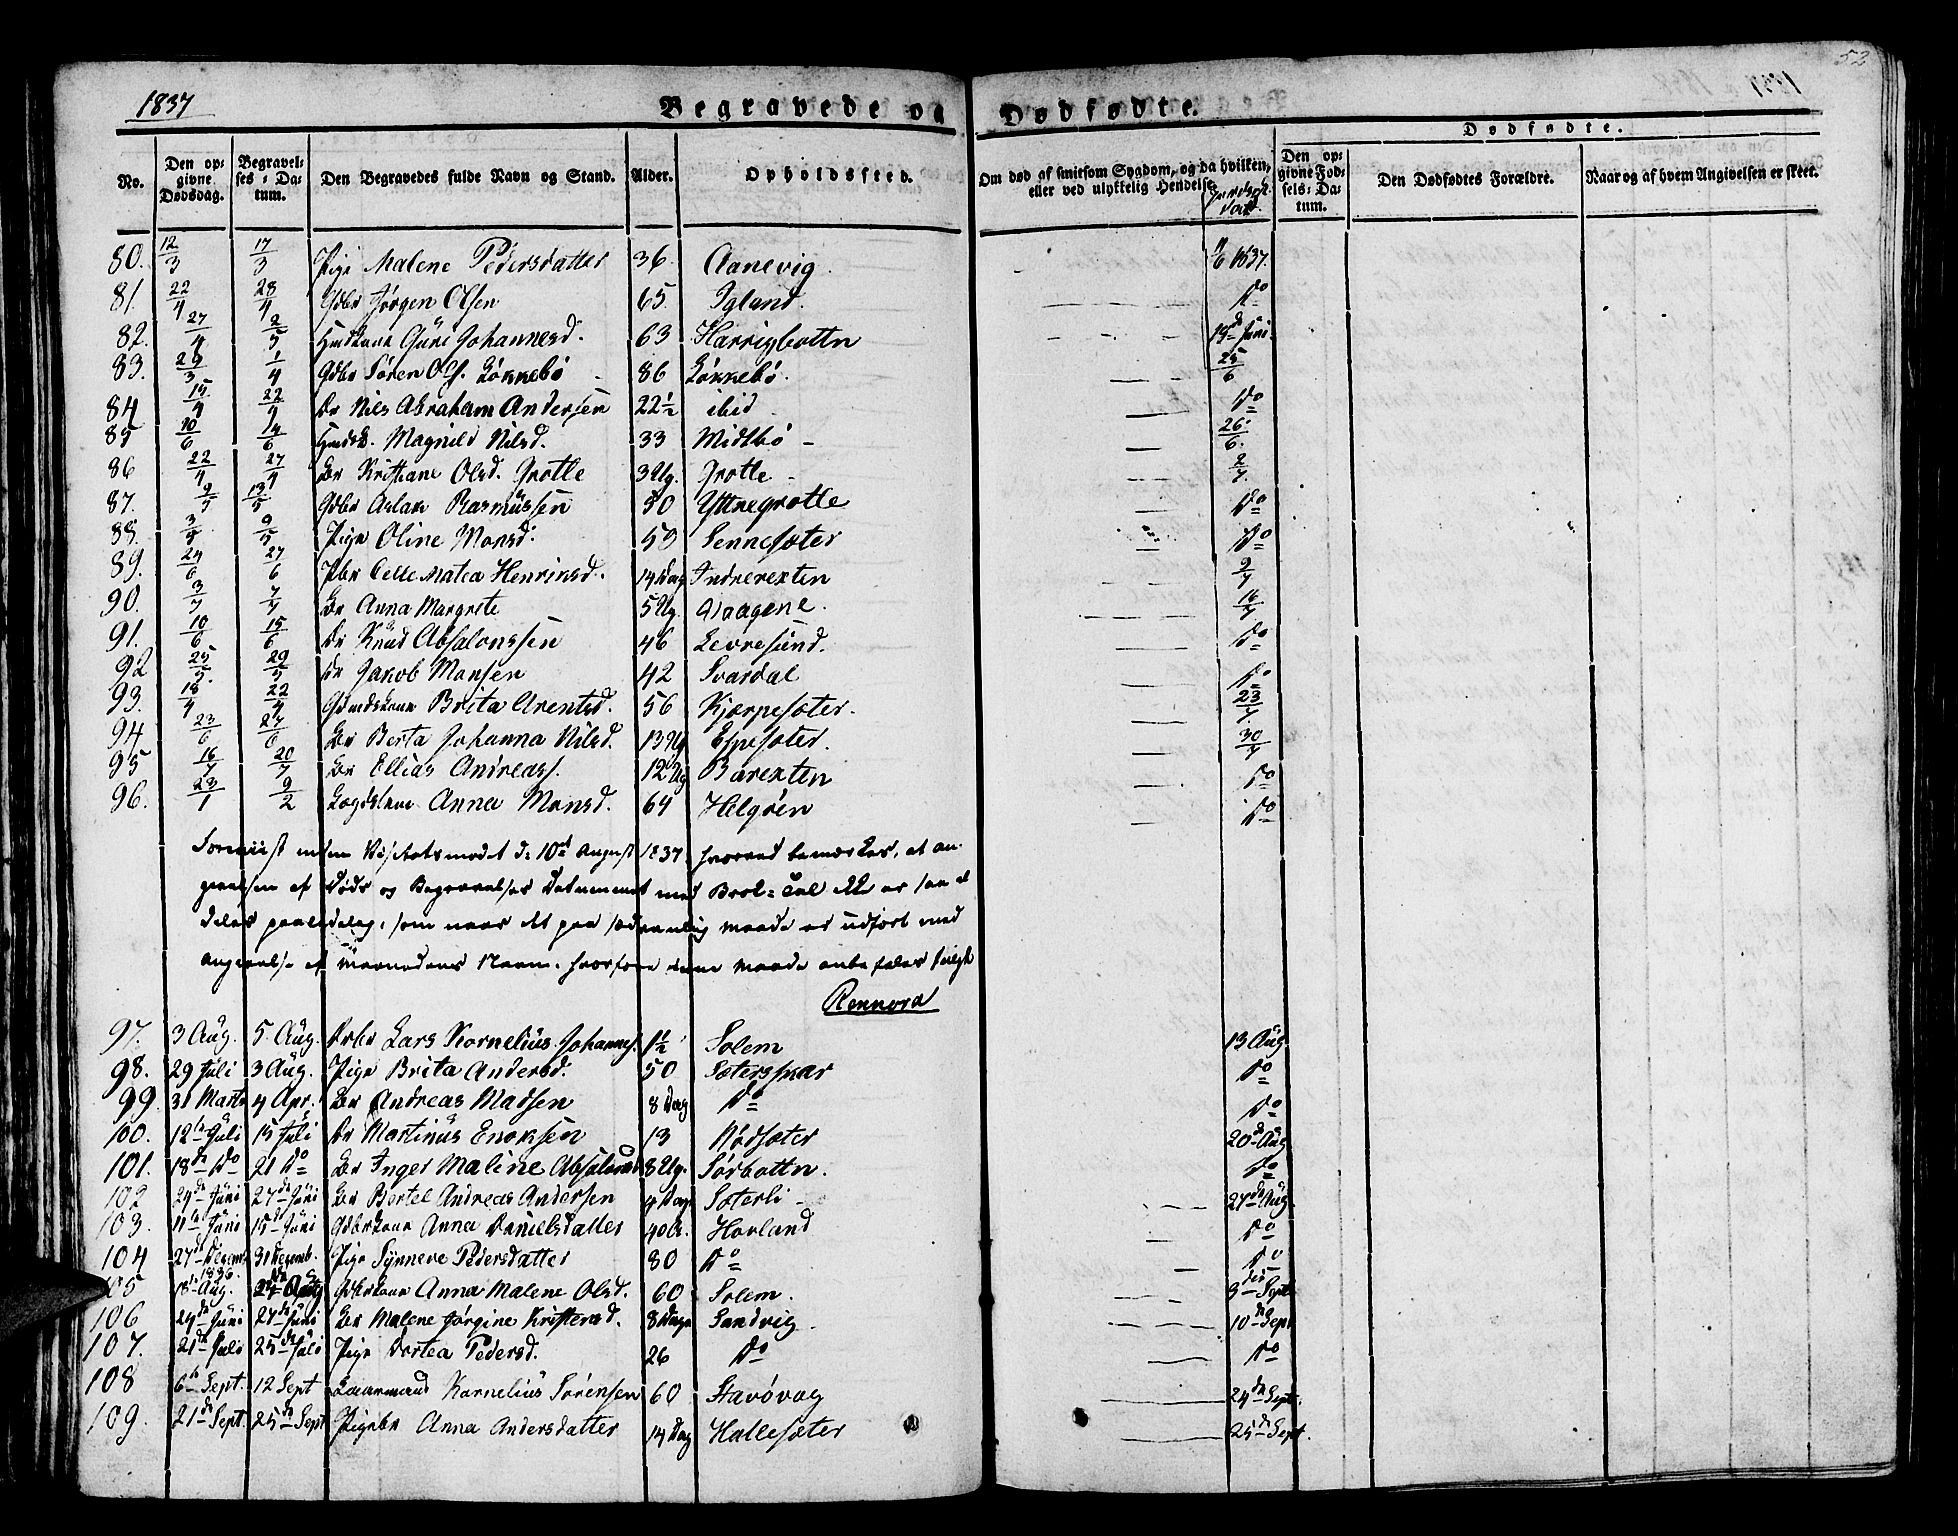 52
1837
Begravede og Dødfødte.
Dødfødte.
No. Den opgivne Dødsdag. Begravelses-Datum. Den Begravedes fulde Navn og Stand. Alder. Opholdssted. Om død af smitsom Sygdom, og da hvilken, eller ved ulykkelig Hendelse. Den opgivne Fødsels-Datum. Den Dødfødtes Forældre. Naar og af hvem Angivelsen er skeet.
80. 12/3 17/3 Pige Malene Pedersdatter 36. Aanevig. 11/6 1837.
81. 22/4 28/4 Gdbr Jørgen Olsen 65. Igland. Do
82. 27/4 2/5 Güri Johannesd. 63 Harrigbottn
83. 29/3 1/4 Gdbr Søren Ols. Løkkebø 86 Løkkebø. 25/6
84 15/4 22/4 Dr Nils Abraham Andersen 22½ ibid Do
85 10/6 14/6 Magnild Nilsd. 33 Midtbø 26/6
86 22/4 27/4 Br Kristiane Olsd. Grotle 3 Ug. Grotle 2/7
87. 9/5 13/5 Gdbr Aslak Rasmüssen 50 Yttregrotle Do
88. 3/5 9/5 Pige Oline Monsd. 50 Sennesæter Do
89. 24/6 27/6 Celle Matea Henriksd. 14 Dag Indrerexten 9/7
90. 3/7 7/7 Br Anna Margrete 5 Ug. Vaagene. 16/7
91. 10/6 15/6 Dr Knüd Absalonssen 46 Levresünd. Do
92 25/5 29/5 Dr Jakob Monsen 42 Svardal Do
93. 18/4 22/4 Brita Arentsd. 56 Kjærpesæter. 23/7
94 23/6 27/6 Br Berta Johanna Nilsd. 13 Ug Espesæter. 30/7
95 16/7 20/7 Br Ellias Andreass. 12 Ug Barexten Do
96. 28/1 9/2 Anna Monsd. 64 Helgøen Do
Foreviist mesen Visitatsmødet d: 10de August 1837, hvorved bemærkes, at an-
givelsen af Døds og Begravelses Datummet med Brøk-Tal ikke er saa
som naar det paa sædvanlig Maade er udført med
angivelse af Maanedens Navn, hvorfore denne Maade anbefales
Rennord
97. 3 Aug. 5. Aug. Lars Kornelius Johannes. 1½ Solem 13 Aüg
98. 29 Juli 3 Aüg. Pige Brita Andersd. 50 Sætersskar Do
99 31 Marts 4 Apr. Br Andreas Madsen 8 Dag Do Do
100. 12te Jüli 15 Jüli Dr Martinüs Enoksen 13 Rødsæter 20de Aüg
101. 18de Do 21 Do Br Inger Maline Absalonsd 8 Ug. Sørbottn. Do
102 24de Jüni 27de Jüni Br Bertel Andreas Andersen 4 Dage Sæterli 27de Aüg
103. 11te Jüni 15de Jüni Anna Danielsdatter 40 Hovland Do
104 27de Decemb 1836. 31 Decemb. Pige Synneve Pedersdatter 80 Do Do
105 18de Aug. 24de Aug Anna Malene Olsd. 60 Solem. 3die Sept
106 24de Jüni 27de Jüni Br Malene Jørgine Kristensd. 8 Dage Sandvig 10de Sept
107. 21de Juli 25de Jüli Pige Dortea Pedersd. 26 Do Do
108 6te Sept. 12 Sept Kornelius Sørensen 60 Stavøvag 24de Sept.
109. 21de Sept. 25de Sept Pigebr Anna Andersdatter 14 Dag Hallesæter 25de Sept.